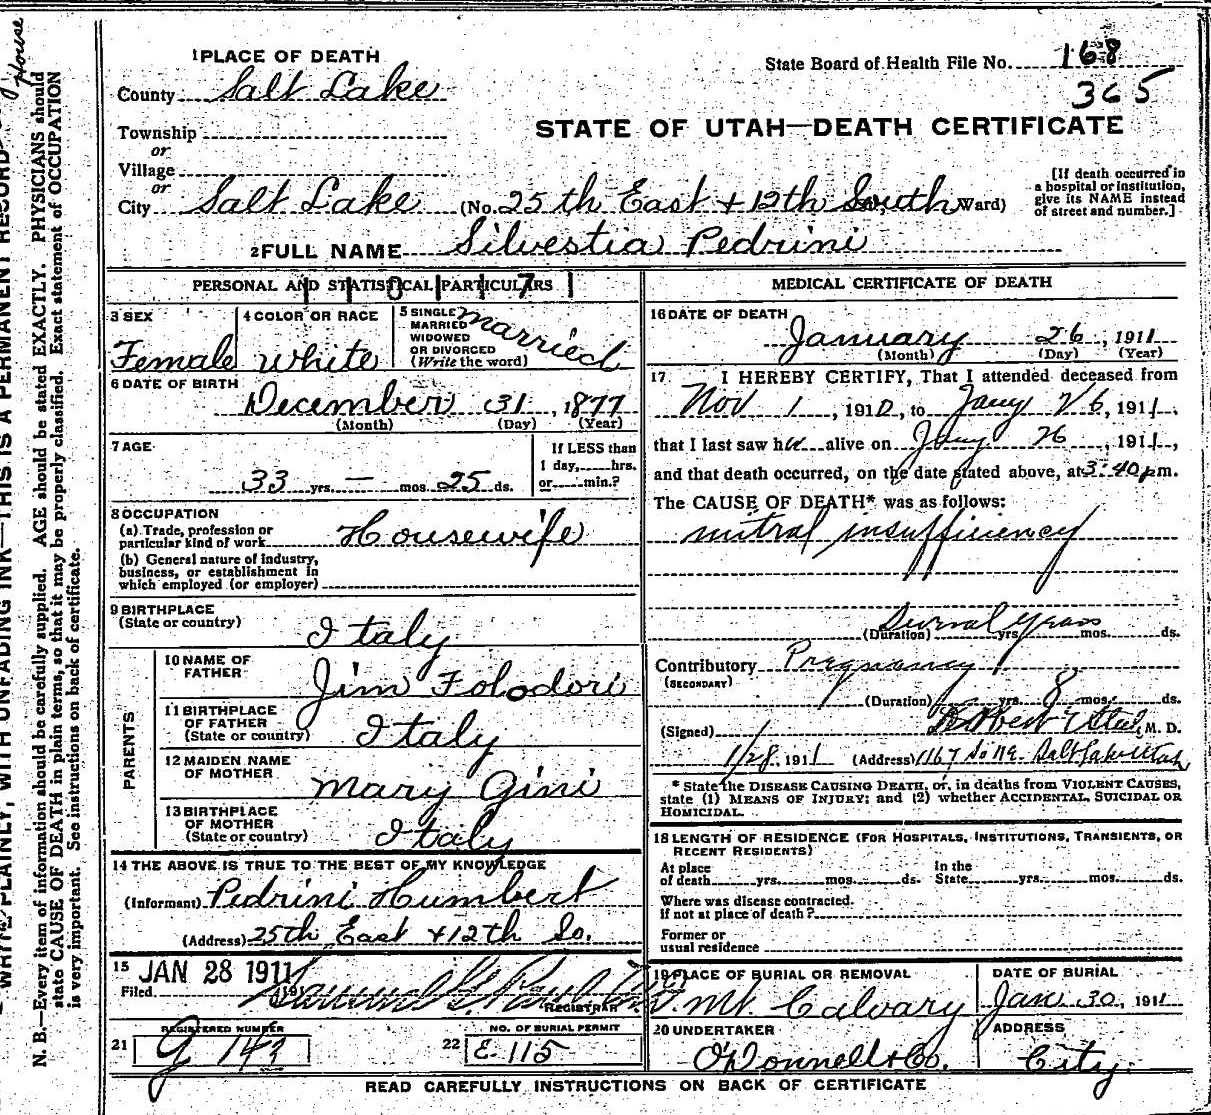 1 PLACE OF DEATH
County Salt Lake
Township
or
Village
or
City Salt Lake (No. 25th East + 12th South Ward)
State Board of Health File No. 168
365
STATE OF UTAH—DEATH CERTIFICATE
[If death occurred in
a hospital or institution,
give its NAME instead
of street and number.]
2 FULL NAME Silvestia Pedrini
PERSONAL AND STATISTICAL PARTICULARS
3 SEX
Female
4 COLOR OR RACE
White
5 SINGLE
MARRIED
WIDOWED
OR DIVORCED
(Write the word)
married
6 DATE OF BIRTH
December 31, 1877
(Month) (Day) (Year)
7 AGE
33 yrs. — mos. 25 ds.
If LESS than
1 day, hrs.
or min.?
8 OCCUPATION
(a) Trade, profession or
particular kind of work Housewife
(b) General nature of industry,
business, or establishment in
which employed (or employer)
9 BIRTHPLACE
(State or country)
Italy
PARENTS
10 NAME OF
FATHER
Jim Folodori
11 BIRTHPLACE
OF FATHER
(State or country)
Italy
12 MAIDEN NAME
OF MOTHER
Mary Gini
13 BIRTHPLACE
OF MOTHER
(State or country)
Italy
14 THE ABOVE IS TRUE TO THE BEST OF MY KNOWLEDGE
(Informant) Pedrini Humbert
(Address) 25th East + 12th So.
15 JAN 28 1911
Filed 191
REGISTRAR
REGISTERED NUMBER
21 G 143
NO. OF BURIAL PERMIT
22 E 115
MEDICAL CERTIFICATE OF DEATH
16 DATE OF DEATH
January 26, 1911
(Month) (Day) (Year)
17 I HEREBY CERTIFY, That I attended deceased from
Nov 1, 1910, to Jany 26, 1911,
that I last saw her alive on Jany 26, 1911,
and that death occurred, on the date stated above, at 3:40 pm.
The CAUSE OF DEATH* was as follows:
mitral insufficiency
(Duration) Several years yrs. mos. ds.
Contributory Pregnancy
(SECONDARY)
(Duration) yrs. 8 mos. ds.
(Signed) M. D.
1/28, 1911 (Address) 1167 So Salt Lake Utah
* State the DISEASE CAUSING DEATH, or, in deaths from VIOLENT CAUSES,
state (1) MEANS OF INJURY; and (2) whether ACCIDENTAL, SUICIDAL OR
HOMICIDAL.
18 LENGTH OF RESIDENCE (FOR HOSPITALS, INSTITUTIONS, TRANSIENTS, OR
RECENT RESIDENTS)
At place
of death yrs. mos. ds.
In the
State yrs. mos. ds.
Where was disease contracted.
If not at place of death?
Former or
usual residence
19 PLACE OF BURIAL OR REMOVAL
Mt. Calvary
DATE OF BURIAL
Jan 30, 1911
20 UNDERTAKER
O'Donnell & Co.
ADDRESS
City.
READ CAREFULLY INSTRUCTIONS ON BACK OF CERTIFICATE
WRITE PLAINLY, WITH UNFADING INK—THIS IS A PERMANENT RECORD
N. B.—Every item of information should be carefully supplied. AGE should be stated EXACTLY. PHYSICIANS should
state CAUSE OF DEATH in plain terms, so that it may be properly classified. Exact statement of OCCUPATION
is very important. See instructions on back of certificate.
House